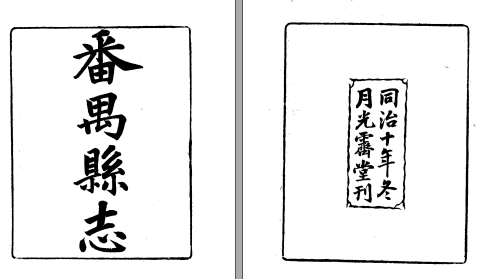 番禺縣志
同治十年冬
月光霽堂刊